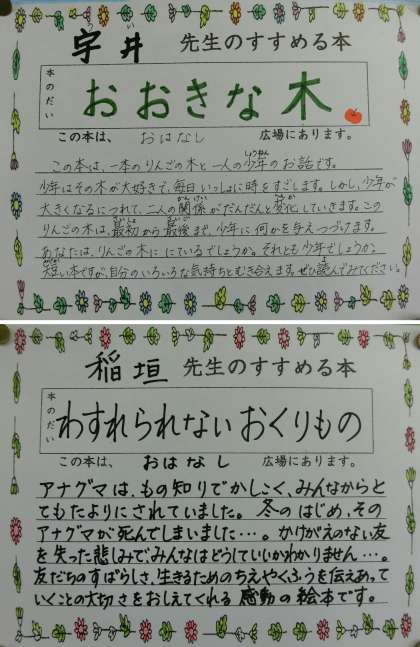 宇井 先生のすすめる本
本のだい
おおきな木
この本は、 おはなし 広場にあります。
この本は、一本のりんごの木と一人の少年のお話です。
少年はその木が大好きで、毎日いっしょに時をすごします。しかし、少年が
大きくなるにつれて、二人の関係がだんだんと変化していきます。この
りんごの木は、最初から最後まで、少年に何かを与えつづけます。
あなたは、りんごの木ににているでしょうか。それとも少年でしょうか。
短い本ですが、自分のいろいろな気持ちとむき合えます。ぜひ読んでみてください。
稲垣 先生のすすめる本
本のだい
わすれられない おくりもの
この本は、 おはなし 広場にあります。
アナグマは、もの知りでかしこく、みんなからと
てもたよりにされていました。冬のはじめ、その
アナグマが死んでしまいました…。かけがえのない友
を失った悲しみで、みんなはどうしていいかわかりません…。
友だちのすばらしさ、生きるためのちえやくふうを伝えあって
いくことの大切さをおしえてくれる 感動の絵本です。